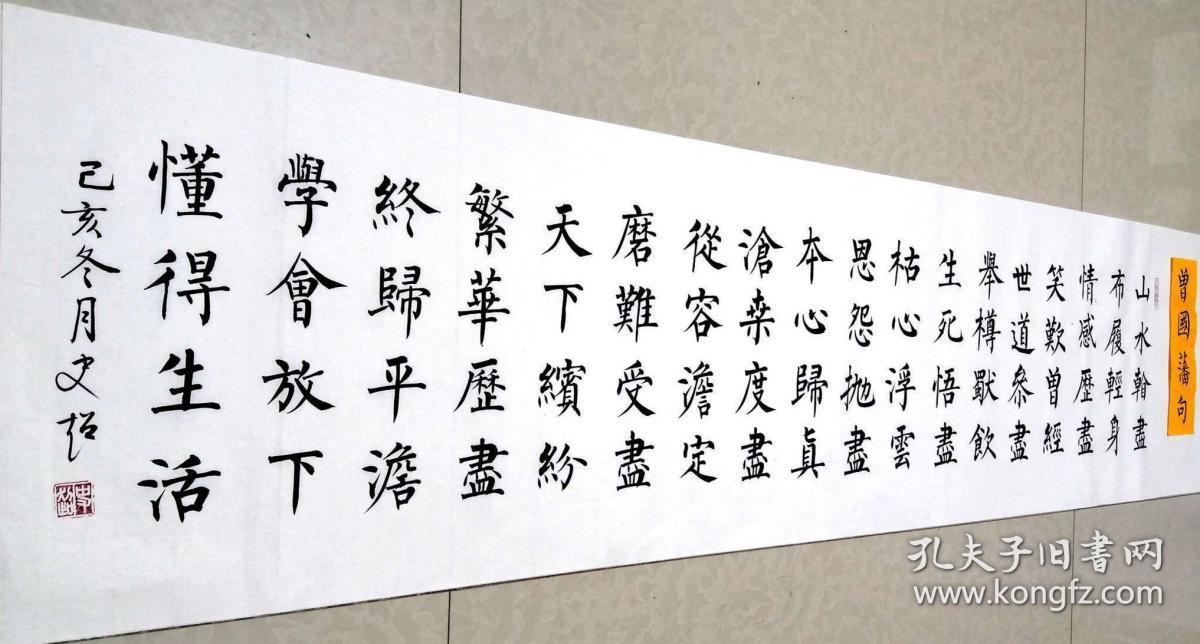 曾國藩句
山水翰盡
布履輕身
情感歷盡
笑歎曾經
世道參盡
舉樽獸飲
生死悟盡
枯心浮雲
恩怨抛盡
本心歸真
滄桑度盡
從容澹定
磨難受盡
天下繽紛
繁華歷盡
終歸平澹
學會放下
懂得生活
己亥冬月史
孔夫子旧书网
www.kongfz.com